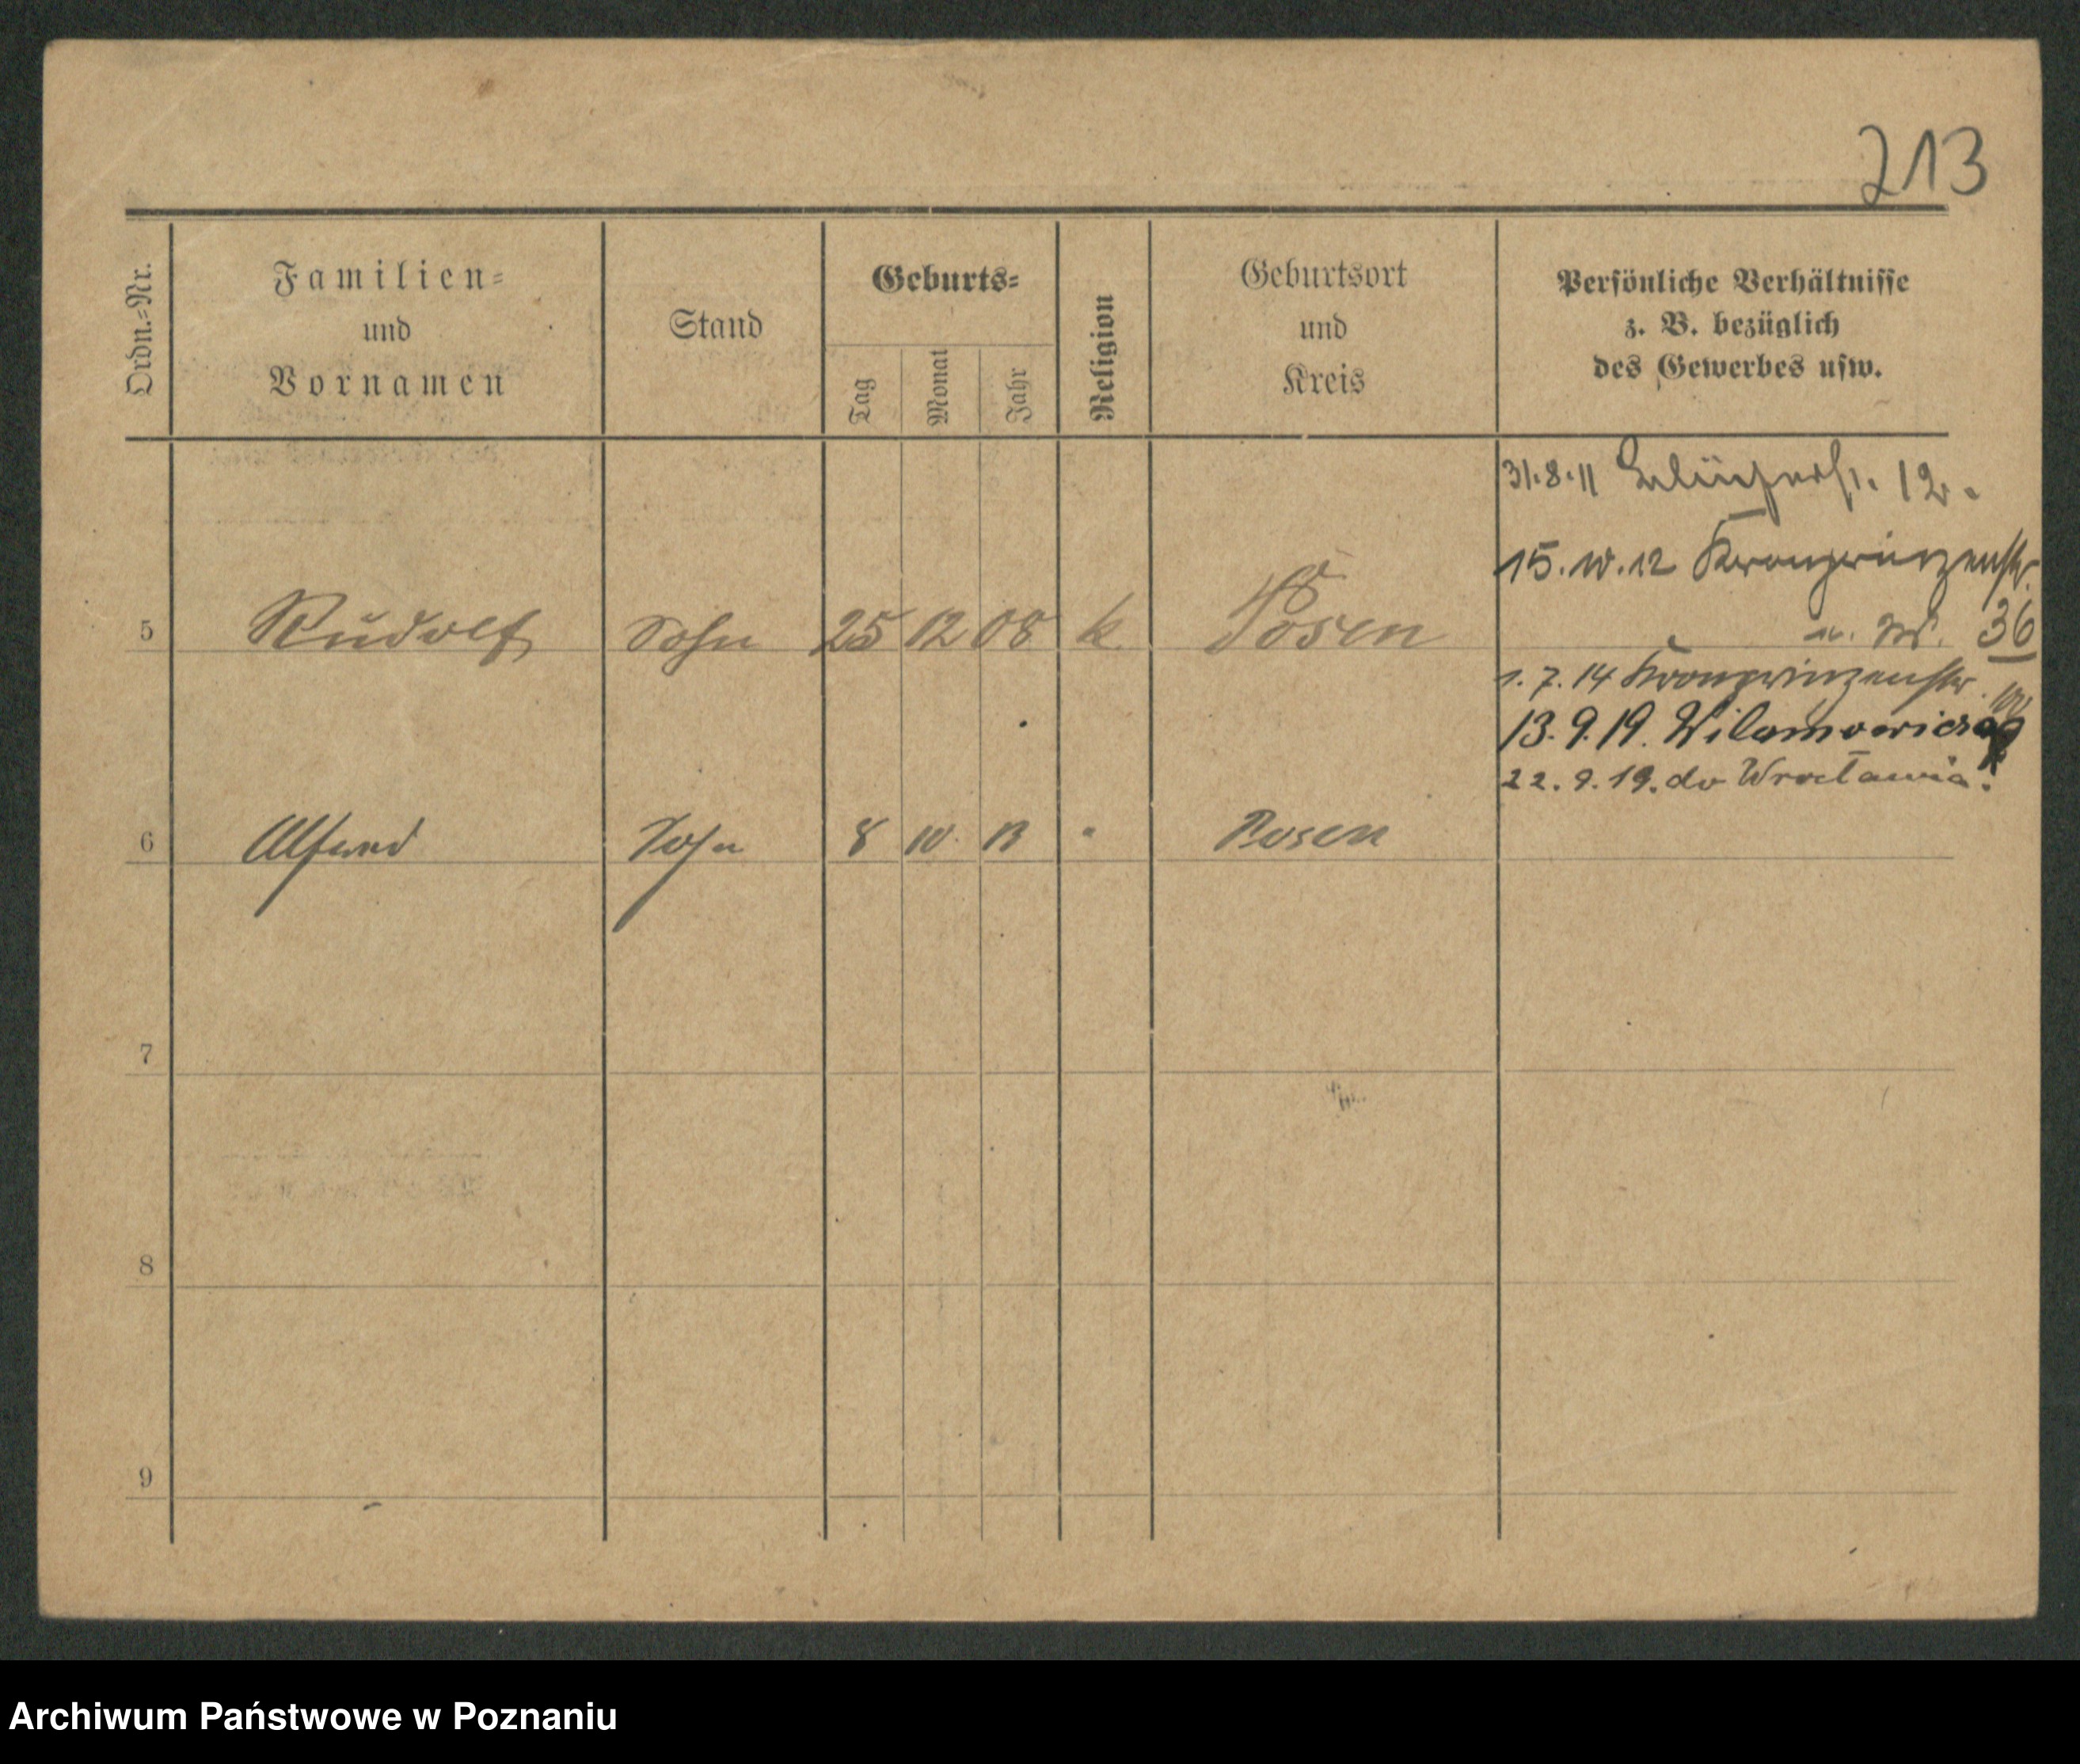 213
Ordn.-Nr.
Familien-
und
Vornamen
Stand
Geburts-
Tag
Monat
Jahr
Religion
Geburtsort
und
Kreis
Persönliche Verhältnisse
z. B. bezüglich
des Gewerbes usw.
31.8.11 Blücherstr. 12.
15.10.12 Kronprinzenstr.
36
5 Rudolf Sohn 25 12 08 k. Posen
1.7.14 Kronprinzenstr.
13.9.19. Wilamowicza
22.9.19. do Wrocławia.
6 Alfred Sohn 8 10. 13 " Posen
7
8
9
Archiwum Państwowe w Poznaniu